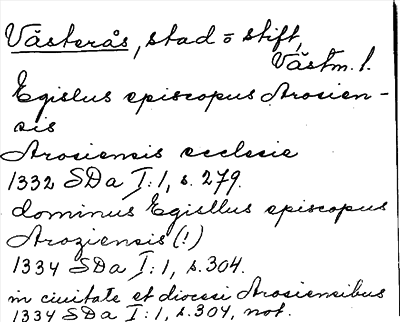 Västerås, stad = stift,
Västm. l.
Egislus episcopus Arosien-
sis
Arosiensis ecclesie
1332 SDa I:1, s. 279.
dominus Egisllus episcopus
Aroziensis (!)
1334 SDa I:1, s. 304.
in ciuitate et diocesi Arosiensibus
1334 SDa I:1, s. 304, not.